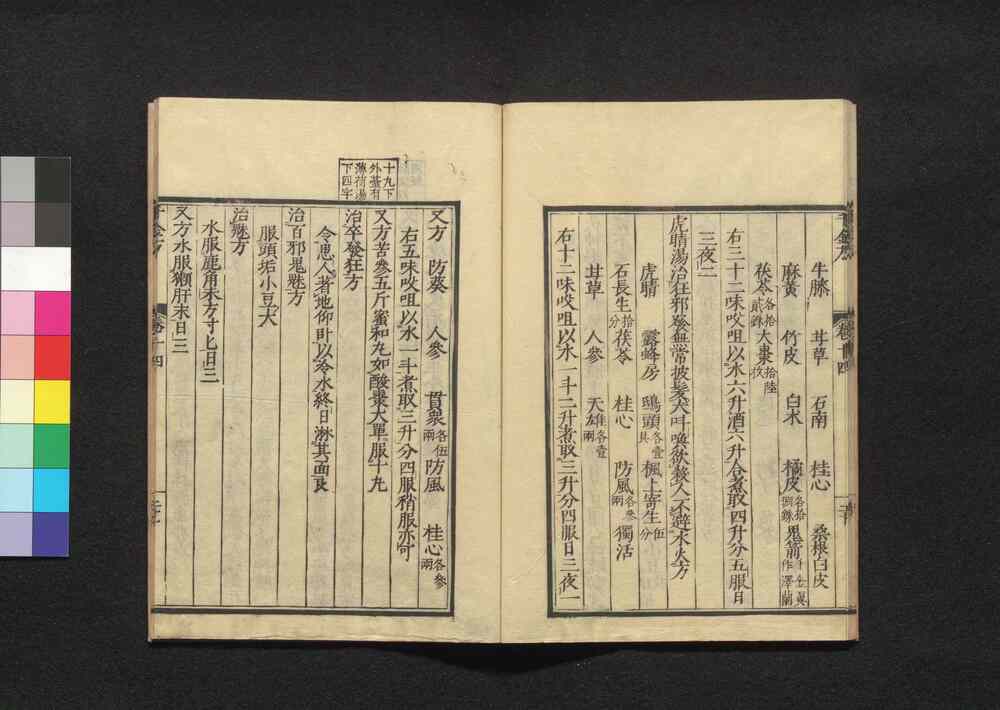 牛膝 茸草 石南 桂心 桑根白皮
麻黃 竹皮 白朮 橘皮各拾捌銖 鬼箭千金翼作澤蘭
茯苓各拾貳銖 大棗拾陸枚
右三十二味㕮咀以水六升酒六升合煮取四升分五服日
三夜二
虎睛湯治狂邪發無常披髮大叫喚欲殺人不避水火方
虎睛 露蜂房 鴟頭各壹具 楓上寄生伍分
石長生拾分 茯苓 桂心 防風各參兩 獨活
茸草 人參 天雄各壹兩
右十二味㕮咀以水一斗二升煮取三升分四服日三夜一
千金方
卷十四
十九下
外臺有
薄荷湯
下四字
又方 防葵 人參 貫衆各伍兩 防風 桂心各參兩
右五味㕮咀以水一斗煮取三升分四服稍服亦可
又方苦參五斤蜜和丸如酸棗大單服十丸
治卒發狂方
令患人著地仰卧以冷水終日淋其面良
治百邪鬼魅方
服頭垢小豆大
治魅方
水服鹿角末方寸匕日三
又方水服獺肝末日三